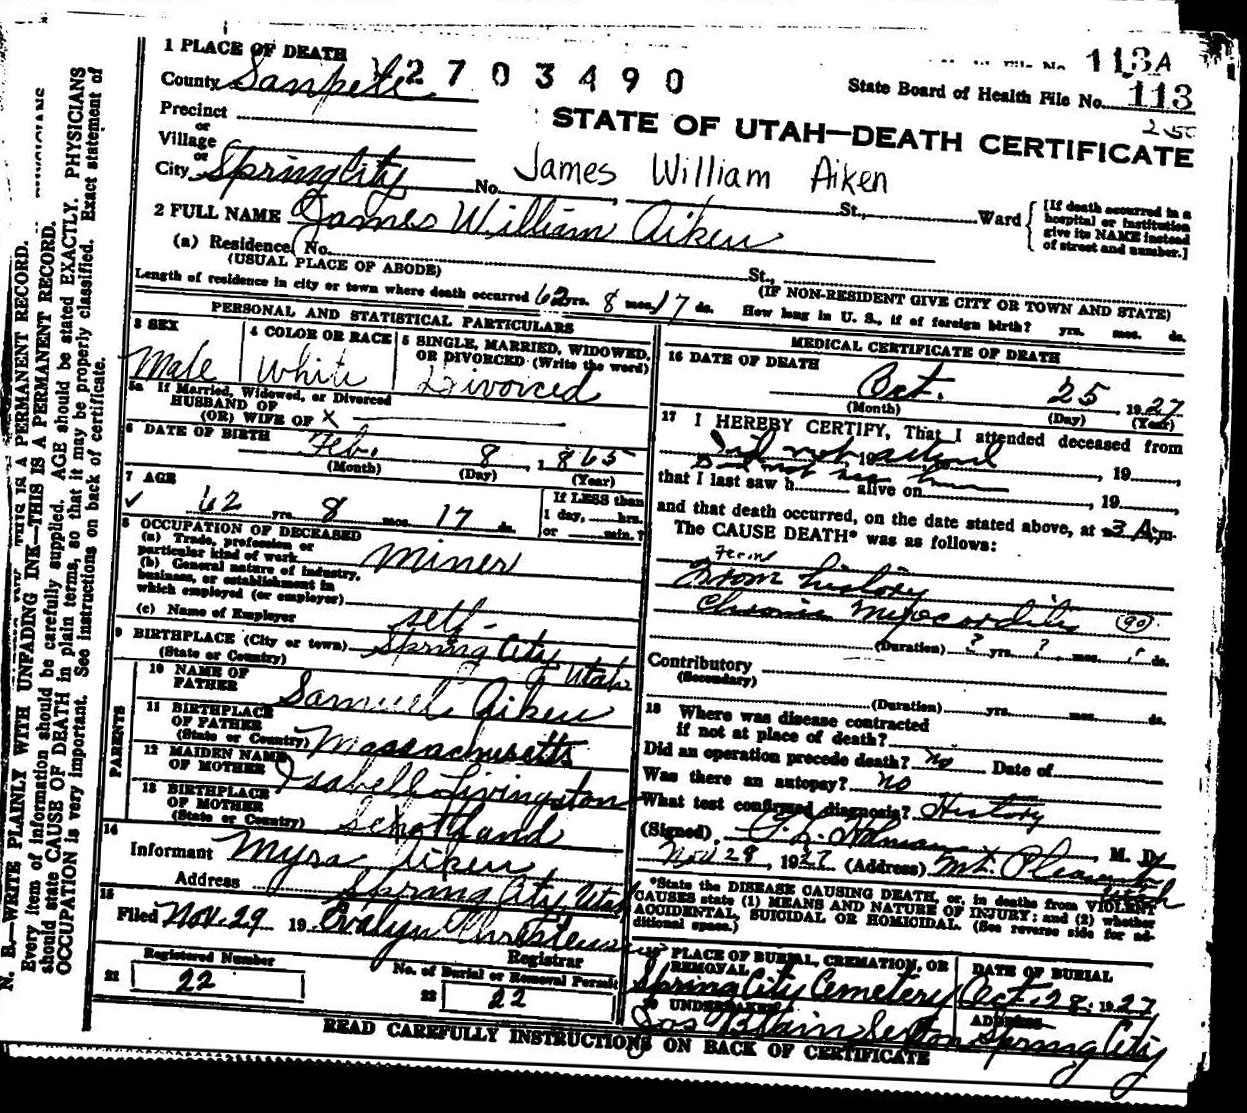 1 PLACE OF DEATH
2703490
113A
County Sanpete
State Board of Health File No. 113
250
Precinct
or
Village
or
City Spring City No. St., Ward
STATE OF UTAH—DEATH CERTIFICATE
James William Aiken
[If death occurred in a hospital or institution give its NAME instead of street and number.]
2 FULL NAME James William Aiken
(a) Residence, No. St.,
(USUAL PLACE OF ABODE)
(IF NON-RESIDENT GIVE CITY OR TOWN AND STATE)
Length of residence in city or town where death occurred 62 yrs. 8 mos. 17 ds. How long in U. S., if of foreign birth? yrs. mos. ds.
PERSONAL AND STATISTICAL PARTICULARS
3 SEX
Male
4 COLOR OR RACE
White
5 SINGLE, MARRIED, WIDOWED, OR DIVORCED (Write the word)
Divorced
5a If Married, Widowed, or Divorced
HUSBAND OF
(OR) WIFE OF X
6 DATE OF BIRTH Feb. 8, 1865
(Month) (Day) (Year)
7 AGE
✓ 62 yrs. 8 mos. 17 ds.
If LESS than
1 day, hrs.
or min.?
8 OCCUPATION OF DECEASED
(a) Trade, profession or
particular kind of work Miner
(b) General nature of industry,
business, or establishment in
which employed (or employer)
(c) Name of Employer self-
9 BIRTHPLACE (City or town) Spring City
(State or Country) Utah
PARENTS
10 NAME OF
FATHER Samuel Aiken
11 BIRTHPLACE
OF FATHER
(State or Country) Massachusetts
12 MAIDEN NAME
OF MOTHER Isabell Livingston
13 BIRTHPLACE
OF MOTHER
(State or Country) Schottland
14
Informant Myra Aiken
Address Spring City, Utah
15
Filed Nov. 29 19 Evalyn Christensen
Registrar
21 Registered Number
22
No. of Burial or Removal Permit
22 22
MEDICAL CERTIFICATE OF DEATH
16 DATE OF DEATH
Oct. 25 1927
(Month) (Day) (Year)
17 I HEREBY CERTIFY, That I attended deceased from
Did not attend, 19, 19
Did not see him
that I last saw h alive on, 19
and that death occurred, on the date stated above, at 3 A.m.
The CAUSE DEATH* was as follows:
From history
Chronic Myocarditis (90)
(Duration) ? yrs. ? mos. ? ds.
Contributory
(Secondary)
(Duration) yrs. mos. ds.
18 Where was disease contracted
if not at place of death?
Did an operation precede death? no Date of
Was there an autopsy? no
What test confirmed diagnosis? History
(Signed) M. D.
Nov 28, 1927 (Address) Mt. Pleasant
Utah
*State the DISEASE CAUSING DEATH, or, in deaths from VIOLENT
CAUSES state (1) MEANS AND NATURE OF INJURY; and (2) whether
ACCIDENTAL, SUICIDAL OR HOMICIDAL. (See reverse side for additional space.)
PLACE OF BURIAL, CREMATION, OR
REMOVAL
Spring City Cemetery
DATE OF BURIAL
Oct. 28. 1927
20 UNDERTAKER
Jos Blain Sexton
ADDRESS
Spring City
READ CAREFULLY INSTRUCTIONS ON BACK OF CERTIFICATE
N. B.—WRITE PLAINLY WITH UNFADING INK—THIS IS A PERMANENT RECORD.
Every item of information should be carefully supplied. AGE should be stated EXACTLY. PHYSICIANS
should state CAUSE OF DEATH in plain terms, so that it may be properly classified. Exact statement of
OCCUPATION is very important. See instructions on back of certificate.